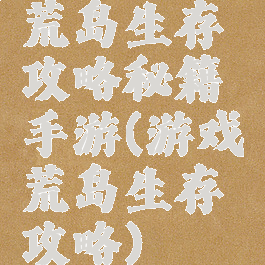 荒岛生存
攻略秘籍
手游(游戏
荒岛生存
攻略)